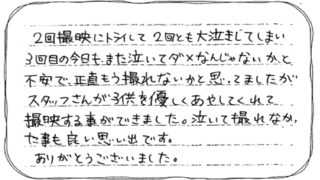 2回撮映にトライして2回とも大泣きしてしまい
3回目の今日も、また泣いてダメなんじゃないかと
不安で、正直もう撮れないかと思ってましたが
スタッフさんが子供を優しくあやしてくれて
撮映する事ができました。泣いて撮れなか、
た事も良い思い出です。
ありがとうございました。